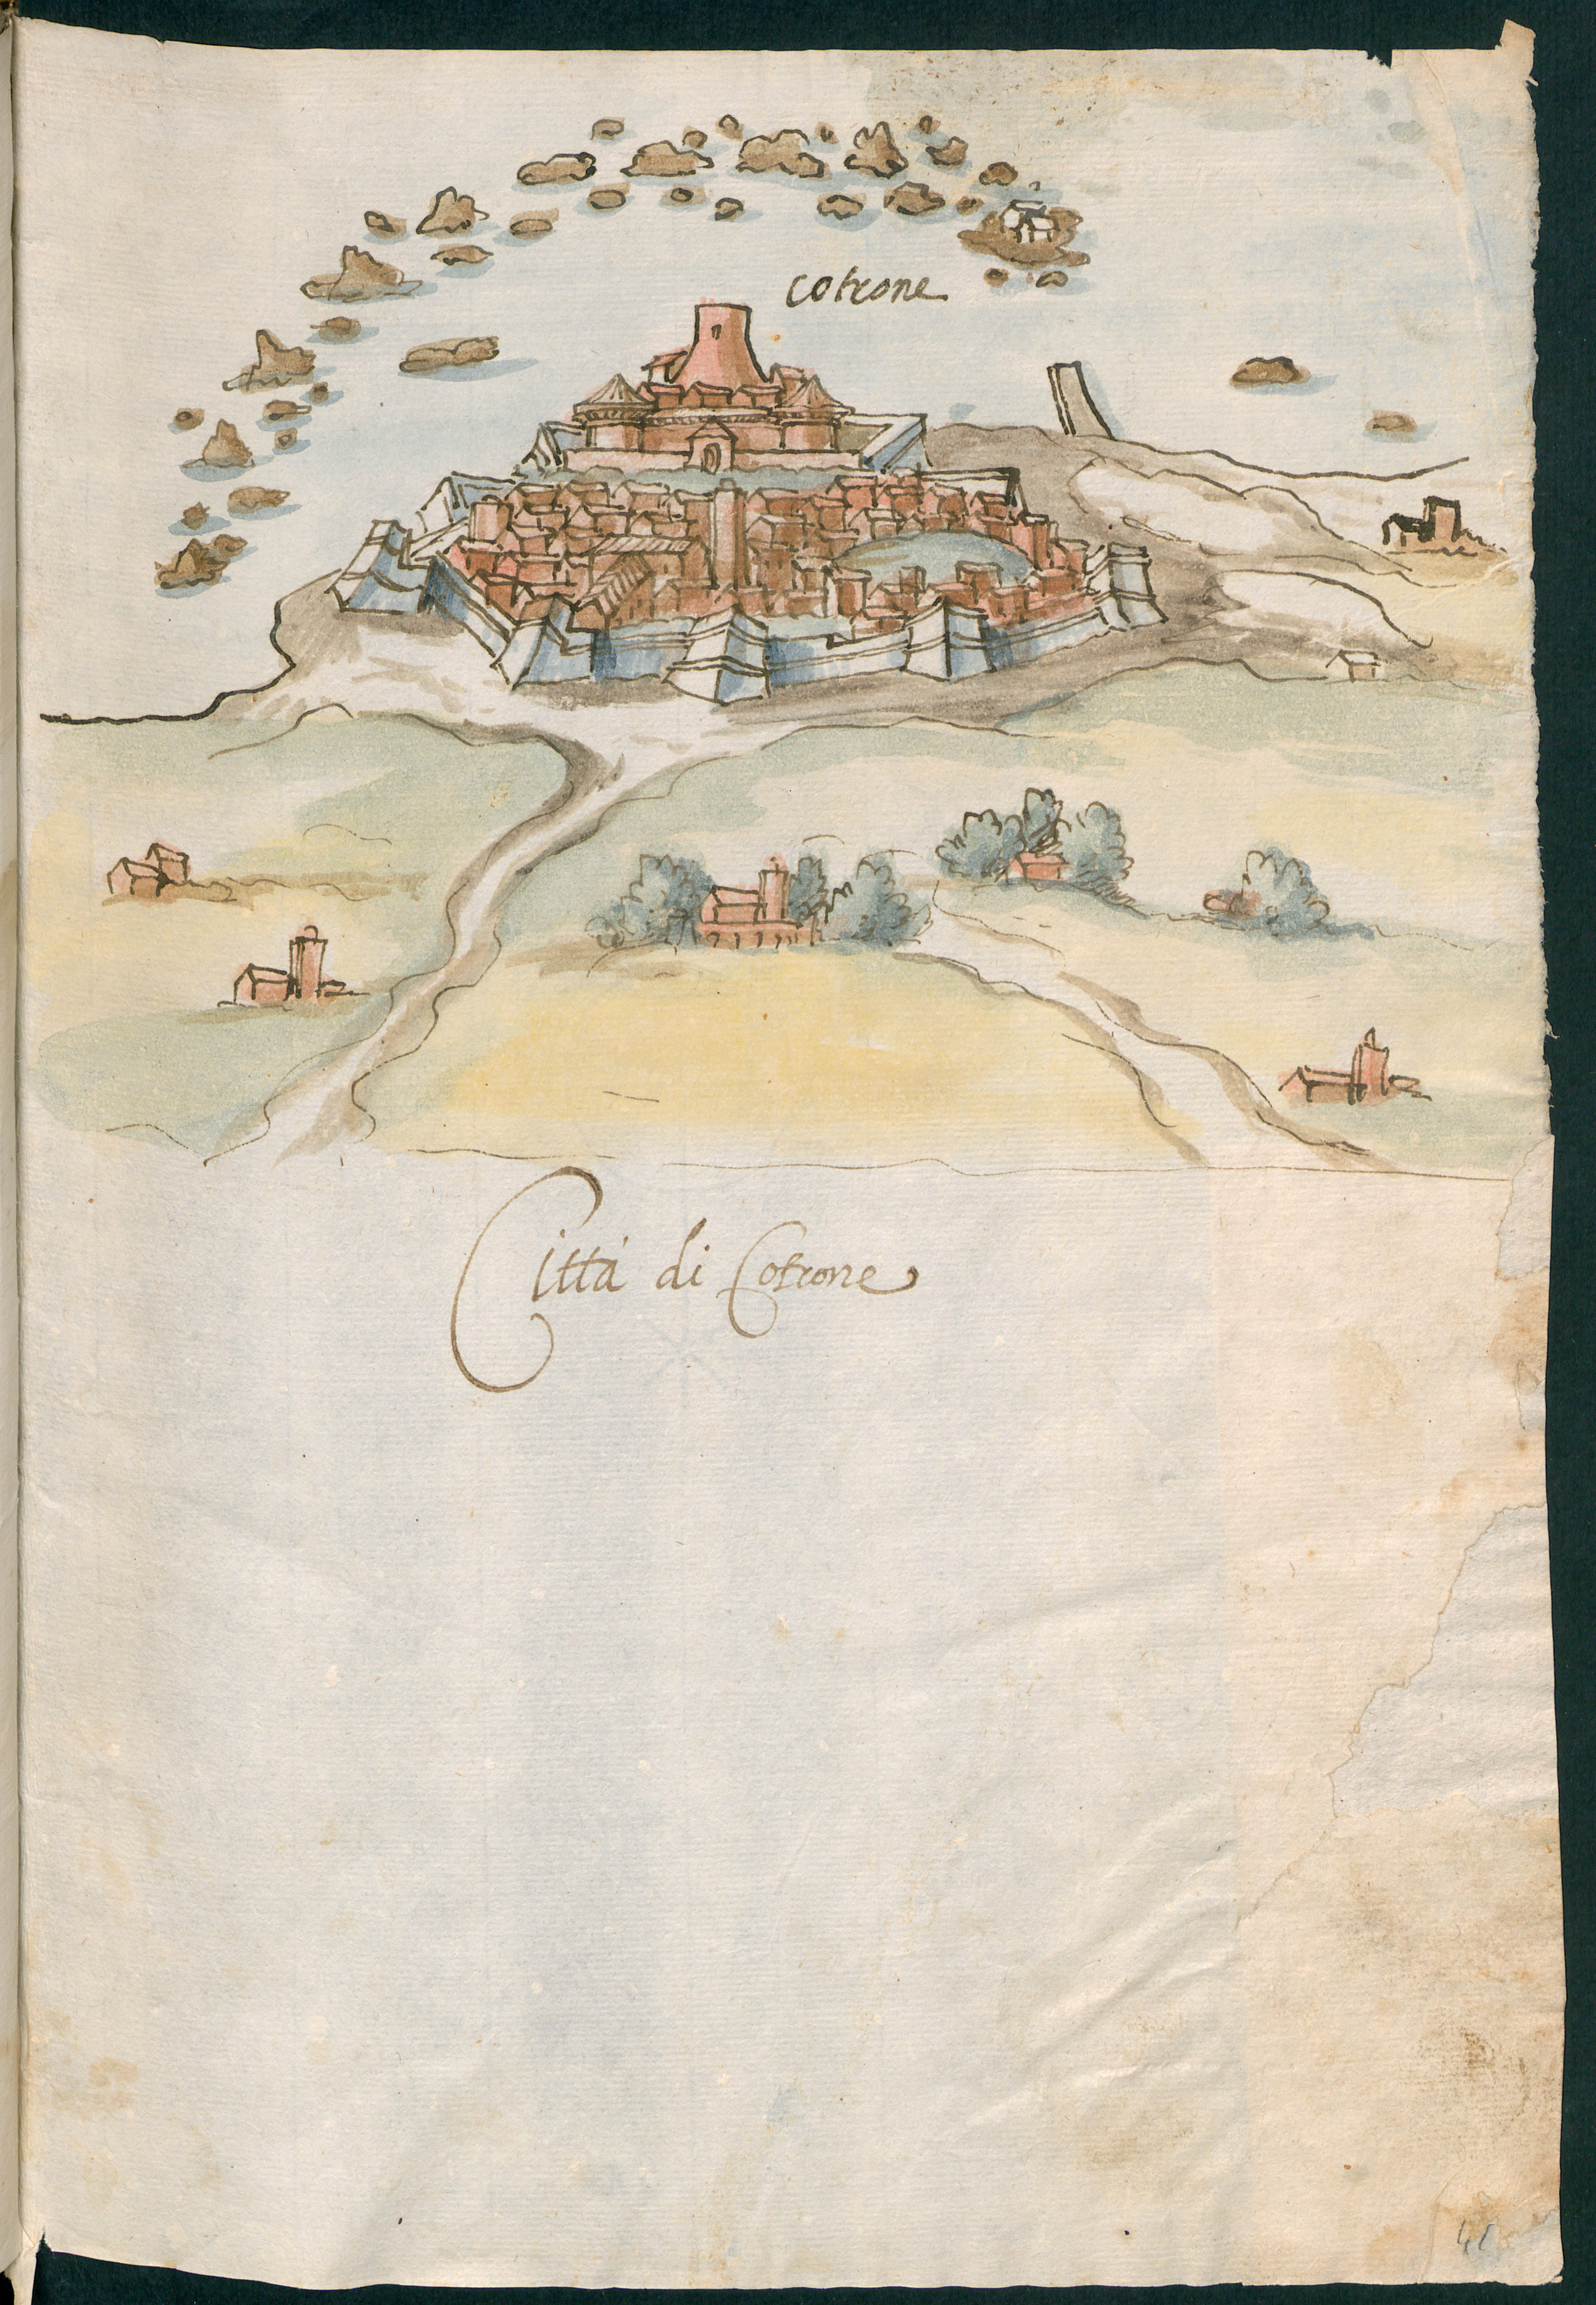 cotrone
Città di Cotrone
41